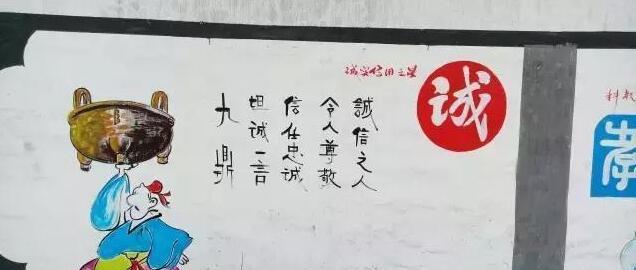 诚实信用之星
诚
誠信之人
令人尊敬
信任忠诚
坦诚一言
九鼎
科教
孝